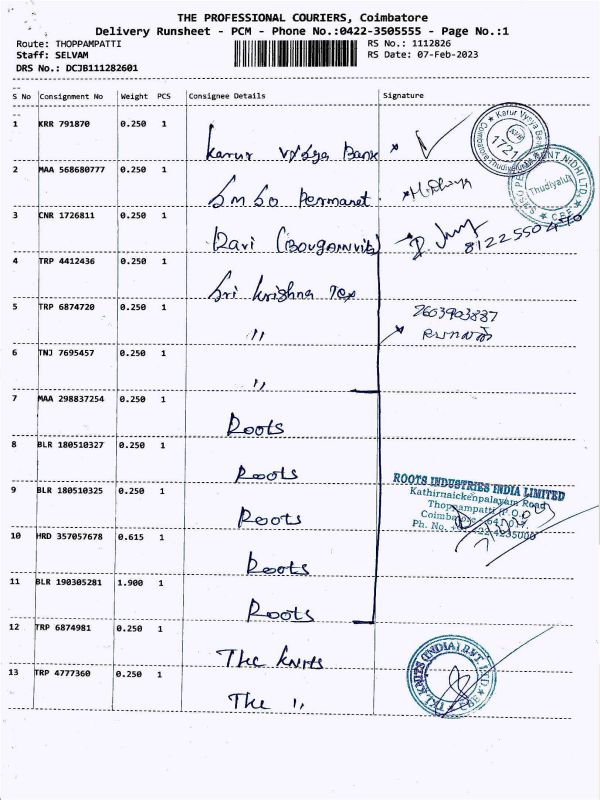 THE PROFESSIONAL COURIERS, Coimbatore
Delivery Runsheet - PCM - Phone No.:0422-3505555 - Page No.:1
Route: THOPPAMPATTI RS No.: 1112826
Staff: SELVAM RS Date: 07-Feb-2023
DRS No.: DCJB111282601
S No Consignment No Weight PCS Consignee Details Signature
1 KRR 791870 0.250 1
Karur Vysya Bank
2 MAA 568680777 0.250 1
Permanet
3 CNR 1726811 0.250 1
Ravi
8122550470
4 TRP 4412436 0.250 1
Sri Krishna Tex
5 TRP 6874720 0.250 1
7603903887
"
6 TNJ 7695457 0.250 1
"
7 MAA 298837254 0.250 1
Roots
8 BLR 180510327 0.250 1
Roots
9 BLR 180510325 0.250 1
Roots
ROOTS INDUSTRIES INDIA LIMITED
Kathirnaickenpalayam Road
Thoppampatti (P.O.)
Coimbatore - 641 017.
Ph. No. 4235000
10 HRD 357057678 0.615 1
Roots
11 BLR 190305281 1.900 1
Roots
12 TRP 6874981 0.250 1
The knits
13 TRP 4777360 0.250 1
The "
Karur Vysya Bank
1721
NIDHI LTD.
Thudiyalur
CBE
KNITS (INDIA) PVT. LTD
CBE